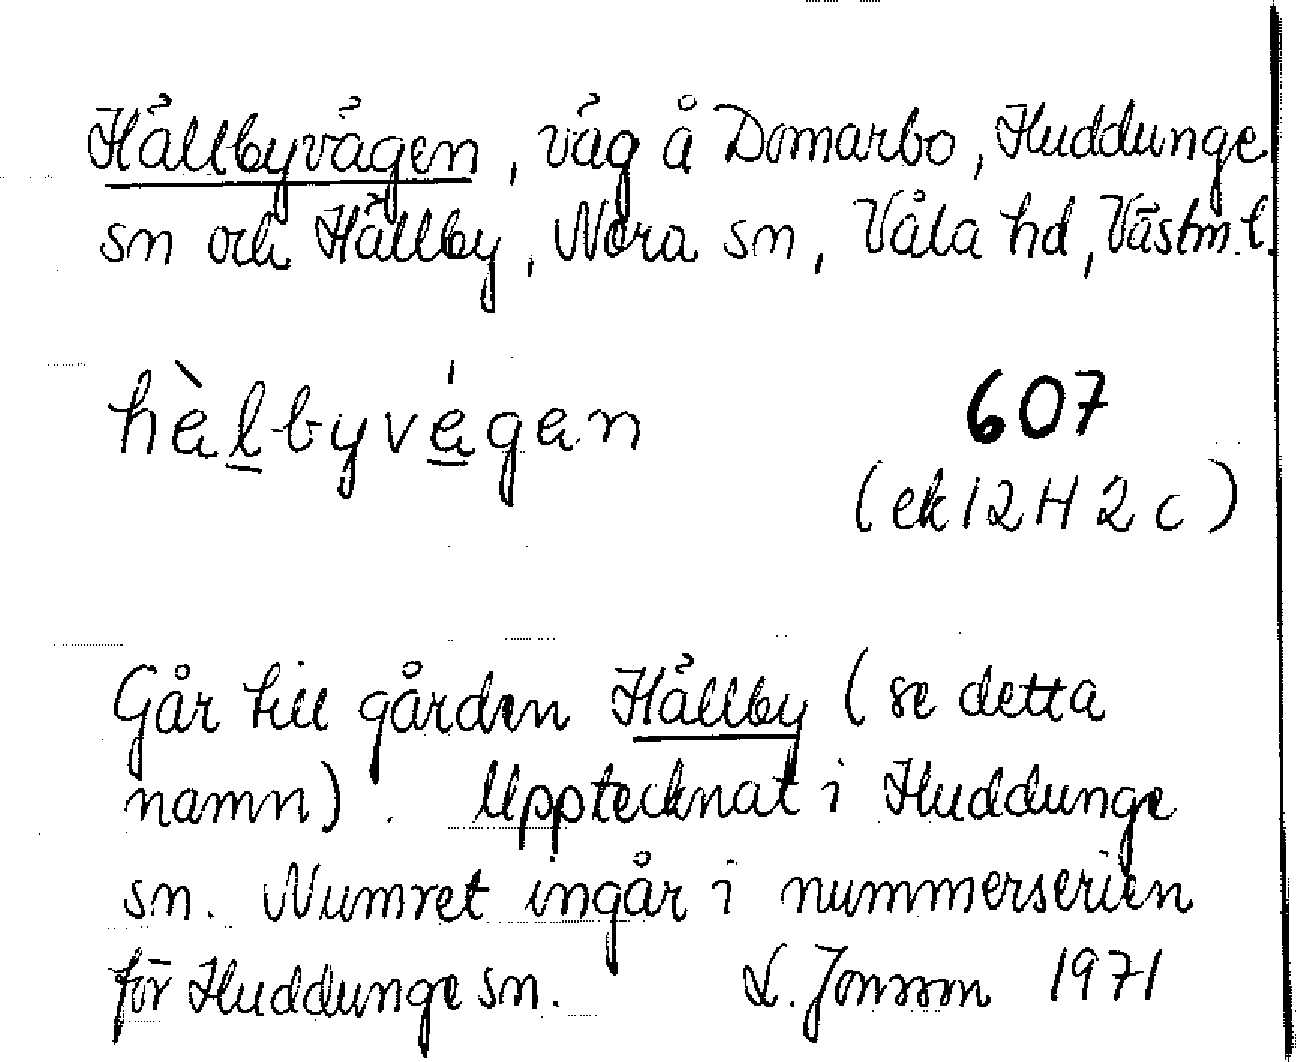 Hällbyvägen, väg å Domarbo, Huddunge
sn och Hällby, Nora sn, Våla hd, Västm. l.
607
(ek 12 H 2 c)
Går till gården Hällby (se detta
namn). Upptecknat i Huddunge
sn. Numret ingår i nummerserien
för Huddunge sn. L. Jonsson 1971